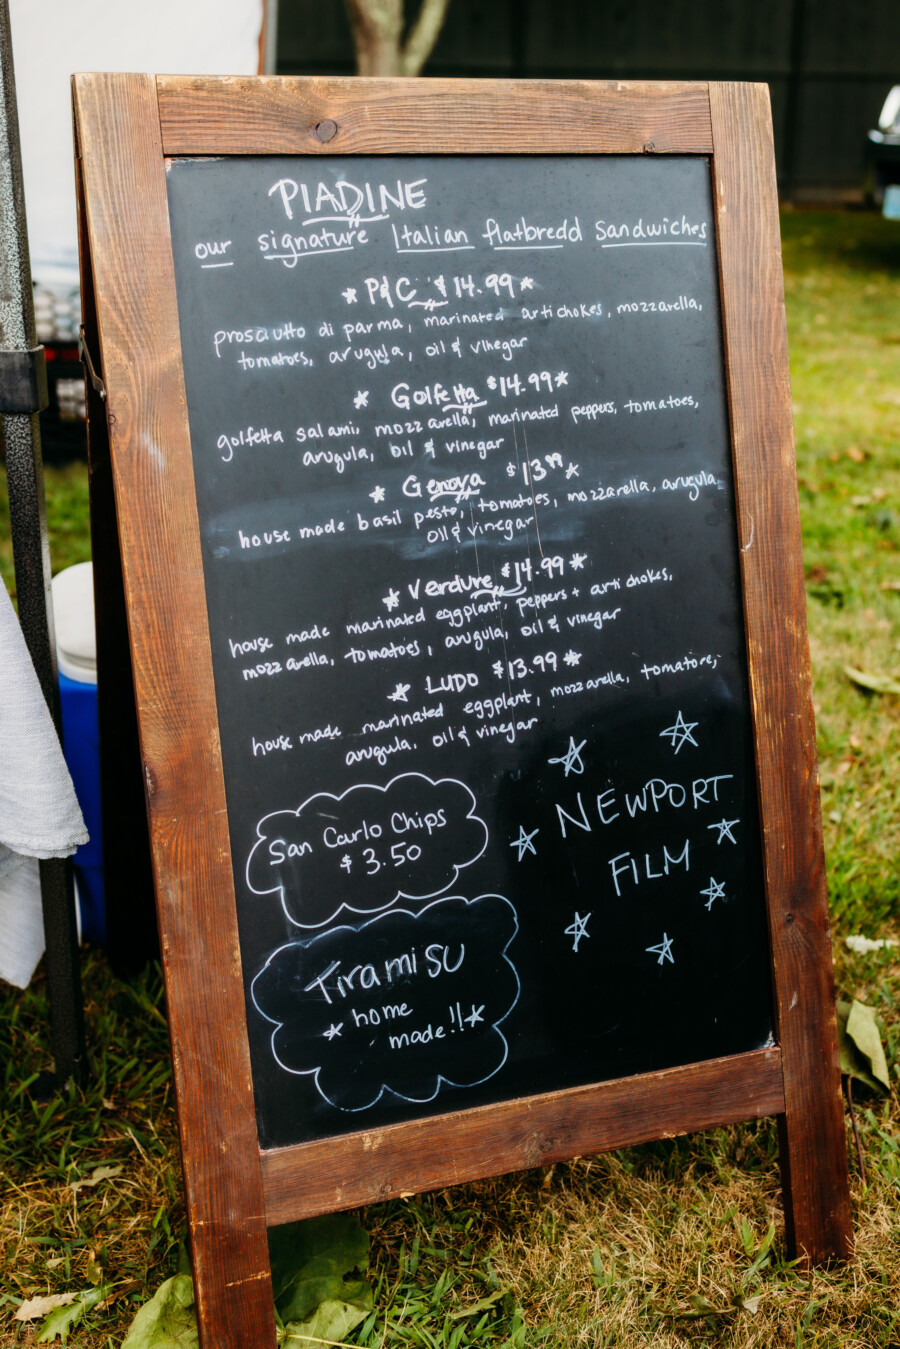 PIADINE
our signature Italian flatbredd sandwiches
* P&C $14.99 *
prosciutto di parma, marinated artichokes, mozzarella,
tomatoes, arugula, oil & vinegar
* Golfetta $14.99 *
golfetta salami, mozzarella, marinated peppers, tomatoes,
arugula, oil & vinegar
* Genova $13.99 *
house made basil pesto, tomatoes, mozzarella, arugula
oil & vinegar
* Verdure $14.99 *
house made marinated eggplant, peppers + artichokes,
mozzarella, tomatoes, arugula, oil & vinegar
* LUDO $13.99 *
house made marinated eggplant, mozzarella, tomatore,
arugula, oil & vinegar
San Carlo Chips
$3.50
NEWPORT
FILM
Tiramisu
* home
made!! *